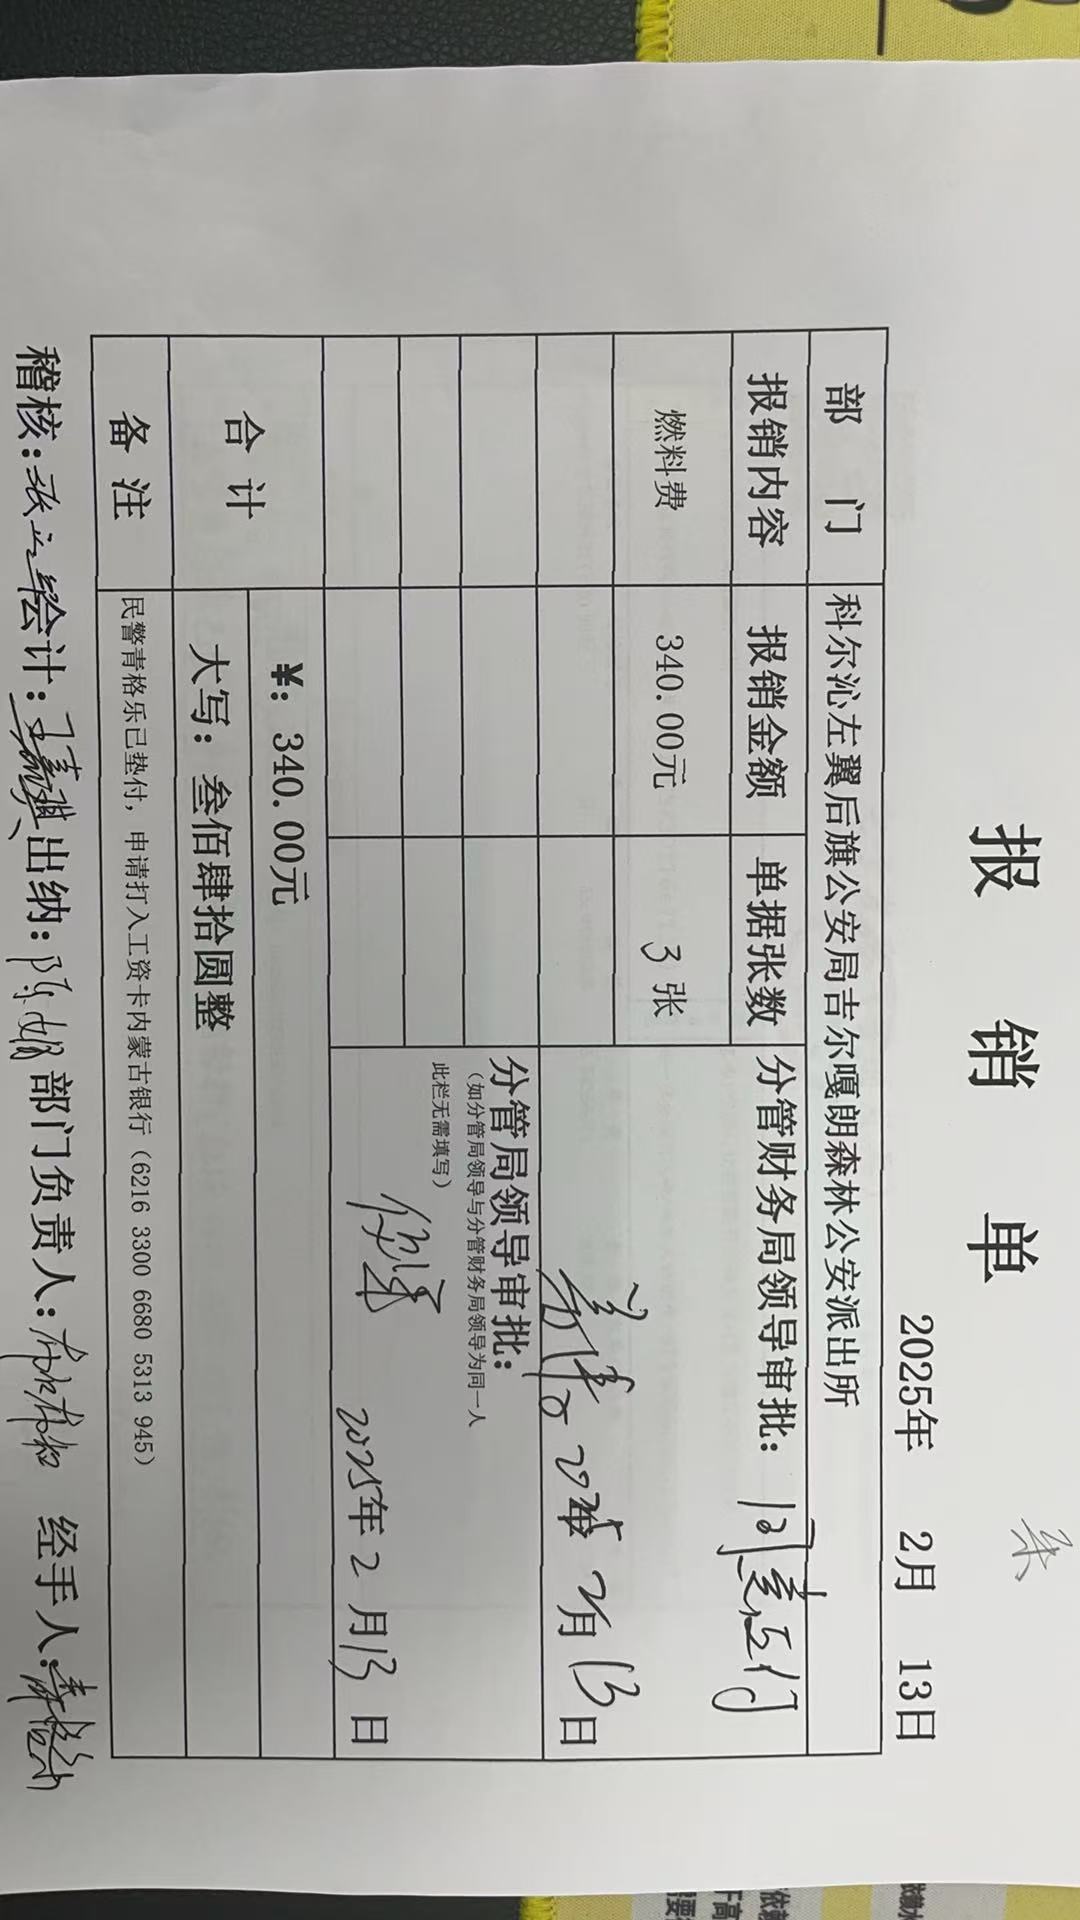 报 销 单
2025年 2月 13日
部 门 科尔沁左翼后旗公安局吉尔嘎朗森林公安派出所
报销内容 报销金额 单据张数 分管财务局领导审批：
燃料费 340.00元 3 张
2025年 2月 13日
分管局领导审批：
（如分管局领导与分管财务局领导为同一人
此栏无需填写）
2025年 2月 13日
合 计 ¥：340.00元
大写：叁佰肆拾圆整
备 注 民警青格乐已垫付，申请打入工资卡内蒙古银行（6216 3300 6680 5313 945）
稽核： 会计： 出纳： 部门负责人： 经手人：